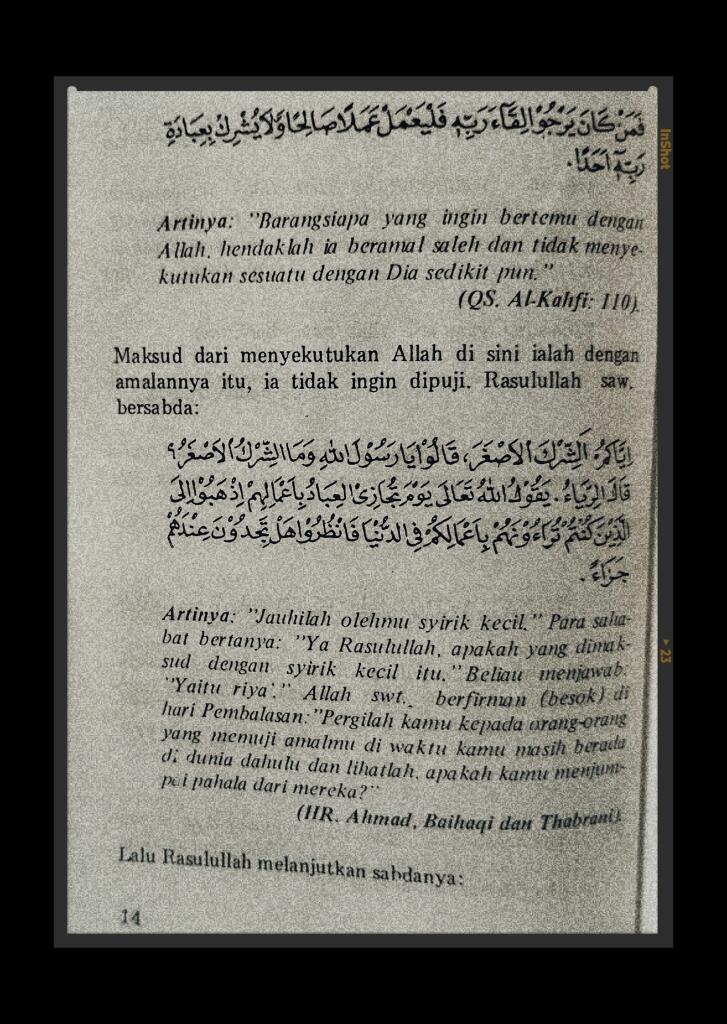 فَمَنْ كَانَ يَرْجُوْا لِقَآءَ رَبِّهٖ فَلْيَعْمَلْ عَمَلًا صَالِحًا وَّلَا يُشْرِكْ بِعِبَادَةِ
رَبِّهٖٓ اَحَدًا.
Artinya: "Barangsiapa yang ingin bertemu dengan
Allah, hendaklah ia beramal saleh dan tidak menye-
kutukan sesuatu dengan Dia sedikit pun."
(QS. Al-Kahfi: 110).
Maksud dari menyekutukan Allah di sini ialah dengan
amalannya itu, ia tidak ingin dipuji. Rasulullah saw.
bersabda:
اِيَّاكُمُ الشِّرْكَ الْاَصْغَرَ، قَالُوْا يَا رَسُوْلَ اللهِ وَمَا الشِّرْكُ الْاَصْغَرُ؟
قَالَ الرِّيَاءُ. يَقُوْلُ اللهُ تَعَالَى يَوْمَ يُجَازِى الْعِبَادُ بِاَعْمَالِهِمْ اِذْهَبُوْا اِلَى
الَّذِيْنَ كُنْتُمْ تُرَاءُوْنَهُمْ بِاَعْمَالِكُمْ فِى الدُّنْيَا فَانْظُرُوْا هَلْ تَجِدُوْنَ عِنْدَهُمْ
جَزَاءً.
Artinya: "Jauhilah olehmu syirik kecil." Para saha-
bat bertanya: "Ya Rasulullah, apakah yang dimak-
sud dengan syirik kecil itu." Beliau menjawab:
"Yaitu riya'." Allah swt., berfirman (besok) di
hari Pembalasan: "Pergilah kamu kepada orang-orang
yang memuji amalmu di waktu kamu masih berada
di dunia dahulu dan lihatlah, apakah kamu menjum-
pai pahala dari mereka?"
(HR. Ahmad, Baihaqi dan Thabrani).
Lalu Rasulullah melanjutkan sabdanya:
14
InShot
23